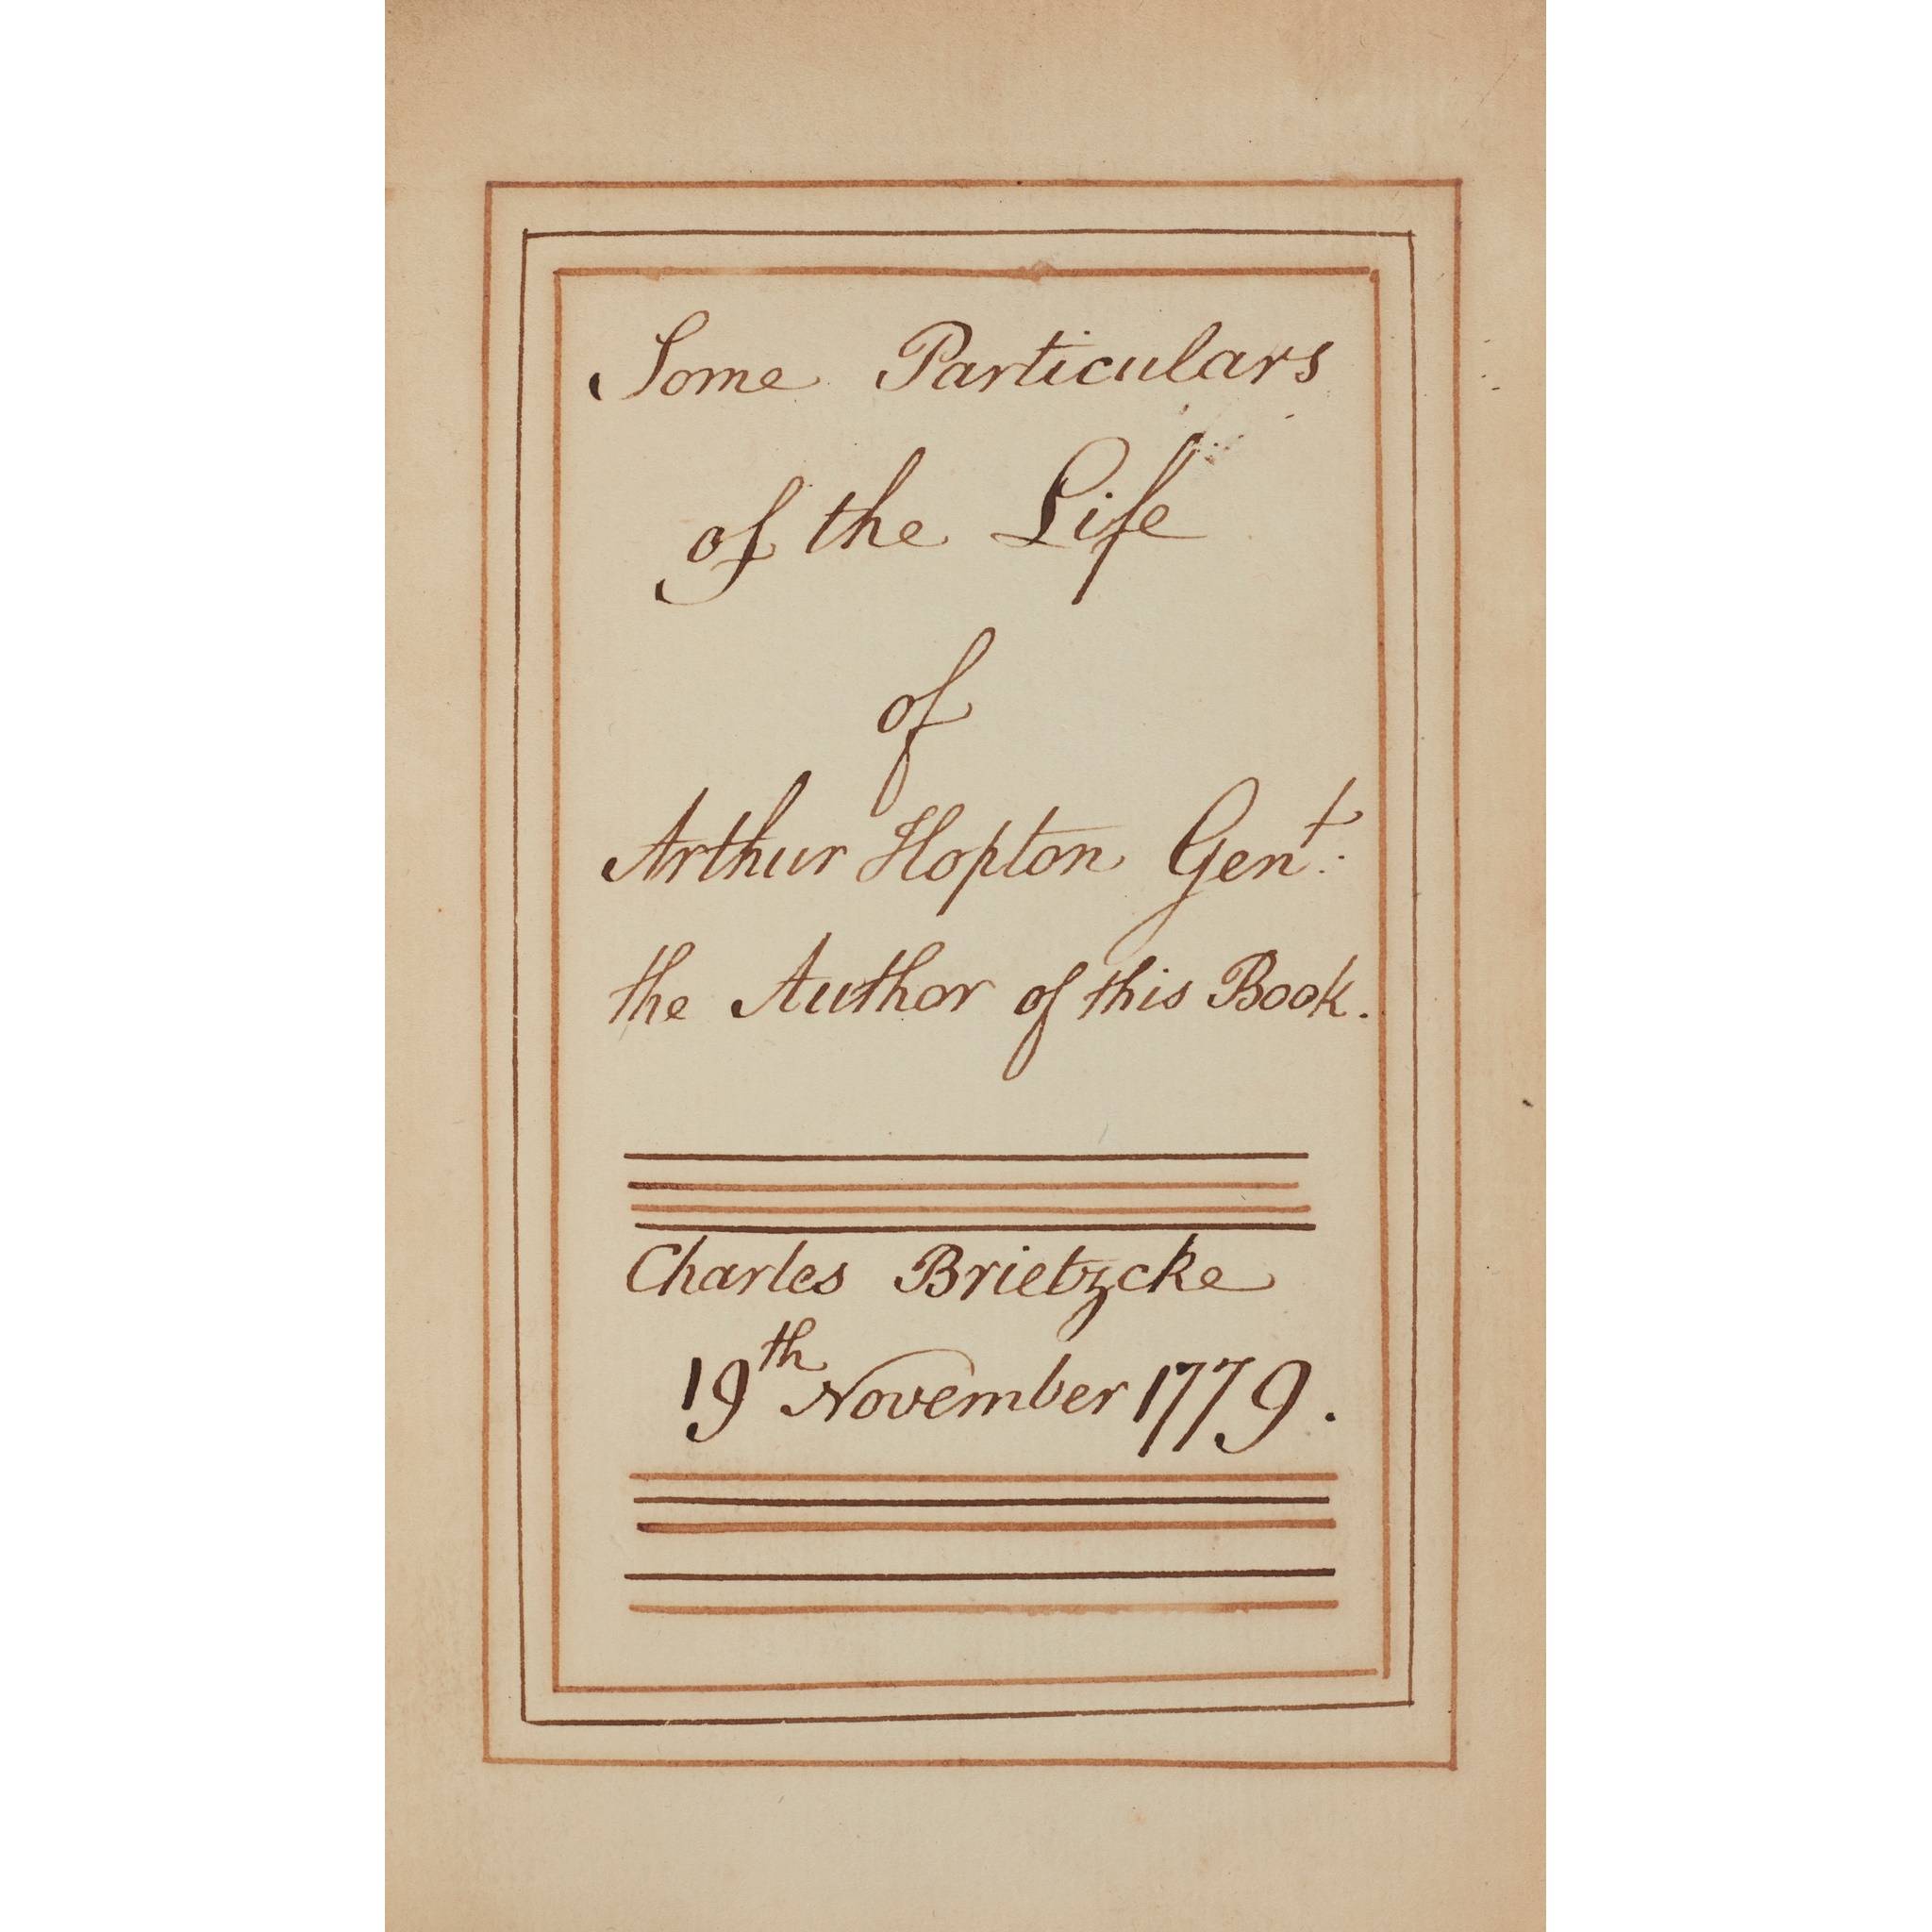 Some Particulars
of the Life
of
Arthur Hopton Genᵗ.
the Author of this Book.
Charles Brietzcke
19ᵗʰ November 1779.